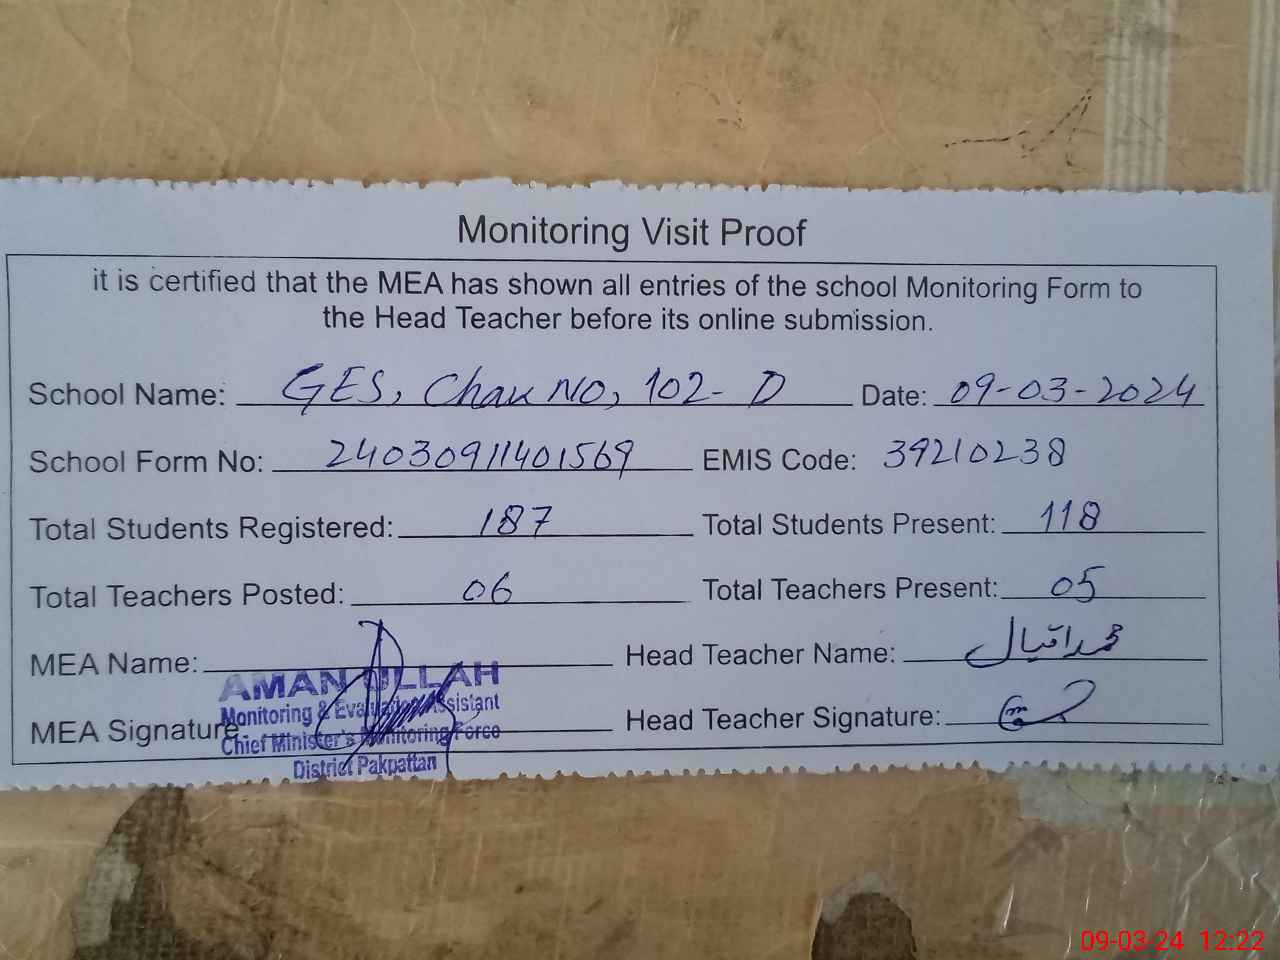 Monitoring Visit Proof
it is certified that the MEA has shown all entries of the school Monitoring Form to
the Head Teacher before its online submission.
School Name: GES, Chak NO, 102-D Date: 09-03-2024
School Form No: 24030911401569 EMIS Code: 39210238
Total Students Registered: 187 Total Students Present: 118
Total Teachers Posted: 06 Total Teachers Present: 05
MEA Name: Head Teacher Name: محمد اقبال
AMAN ULLAH
Monitoring & Evaluation Assistant
MEA Signature Head Teacher Signature:
Chief Minister's Monitoring Force
District Pakpattan
09-03-24 12:22